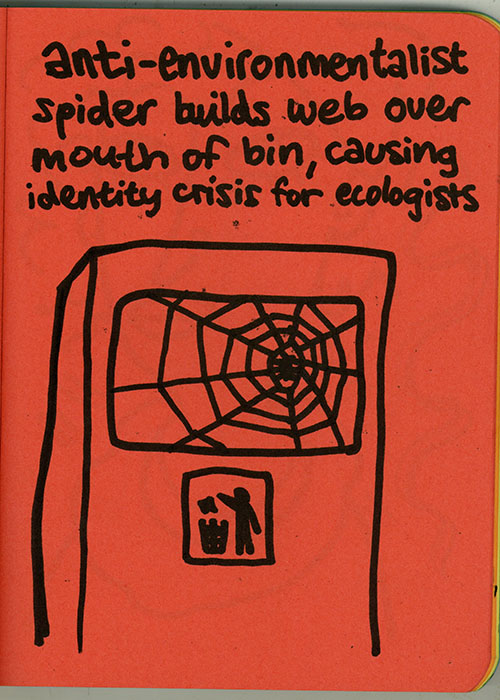 anti-environmentalist
spider builds web over
mouth of bin, causing
identity crisis for ecologists